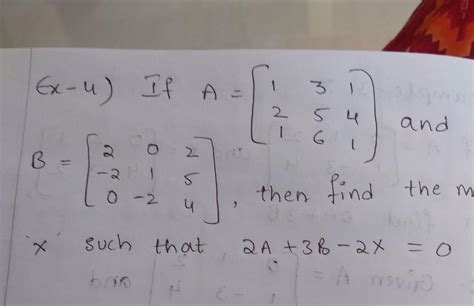 Ex-4) If A = [1 3 1
2 5 4 and
1 6 1]
B = [2 0 2
-2 1 5
0 -2 4], then find the m
'x' such that 2A + 3B - 2X = 0